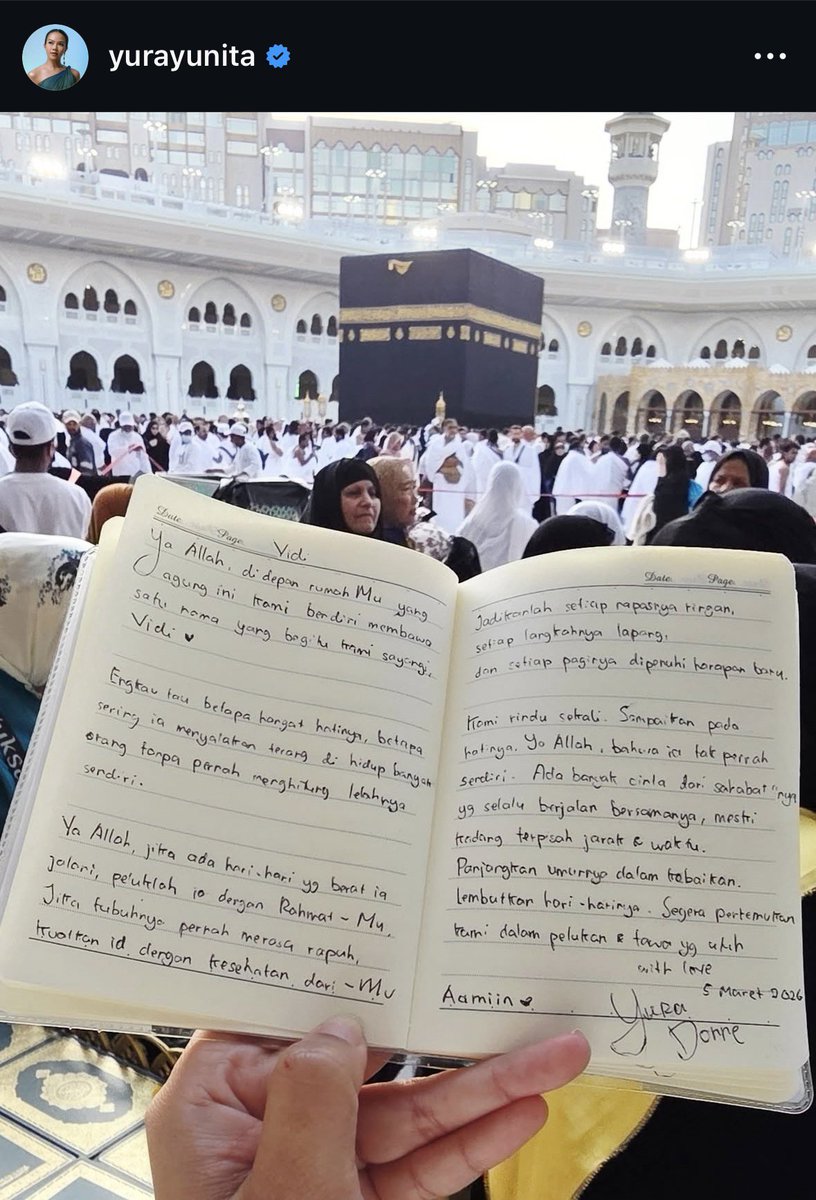 yurayunita
Date
Page
Vidi
Ya Allah, di depan rumah Mu yang
agung ini kami berdiri membawa
satu nama yang begitu kami sayangi,
Vidi ♥
Engkau tau betapa hangat hatinya, betapa
sering ia menyalakan terang di hidup banyak
orang tanpa pernah menghitung lelahnya
sendiri.
Ya Allah, jika ada hari-hari yg berat ia
jalani, peluklah ia dengan Rahmat-Mu,
Jika tubuhnya pernah merasa rapuh,
kuatkan ia dengan kesehatan dari-Mu
Date
Page
Jadikanlah setiap napasnya ringan,
setiap langkahnya lapang,
dan setiap paginya dipenuhi harapan baru.
Kami rindu sekali. Sampaikan pada
hatinya, Ya Allah, bahwa ia tak pernah
sendiri. Ada banyak cinta dari sahabat"nya
yg selalu berjalan bersamanya, meski
kadang terpisah jarak & waktu.
Panjangkan umurnya dalam kebaikan.
Lembutkan hari-harinya. Segera pertemukan
kami dalam pelukan & tawa yg utuh
with love
5 Maret 2026
Aamiin ♥
Yura
Donne